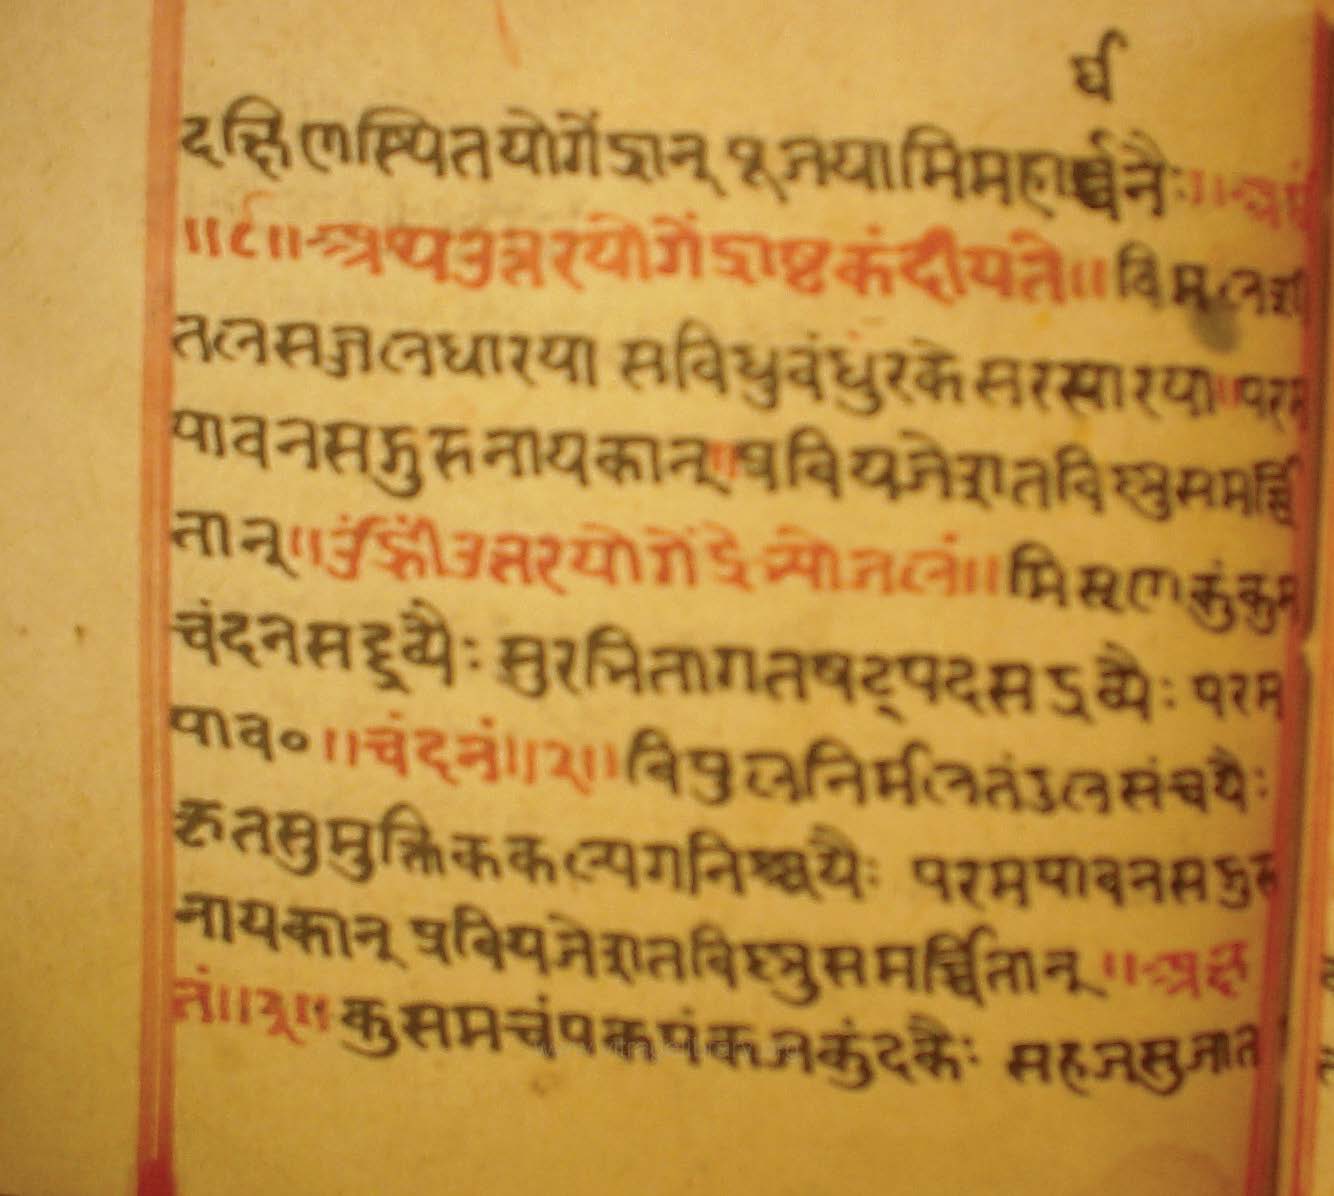 र्घ
दक्षिणस्थितयोगेंद्रान् पूजयामिमहार्घ्यनैः॥अर्घं
॥९॥अथउत्तरयोगेंद्राष्टकंदीयते॥विमलशी
तलसज्जलधारया सविधुबंधुरकेसरसारया॥परम
पावनसद्गुरुनायकान्॥प्रवियजेशतविघ्नुसमर्च्चि
तान्॥उंह्रींउत्तरयोगेंद्रेभ्योजलं॥मिसृणकुंकुम
चंदनसद्द्रवैः सुरभितागतषट्पदसद्रवैः परम
पाव॰॥चंदनं॥२॥विपुलनिर्मलतंडुलसंचयैः
कृतसुमुक्तिककल्पगनिश्चयैः परमपावनसद्गुरु
नायकान् प्रवियजेशतविघ्नुसमर्च्चितान्॥अक्ष
तं॥३॥कुसमचंपकपंकजकुंदकैः सहजसुजात